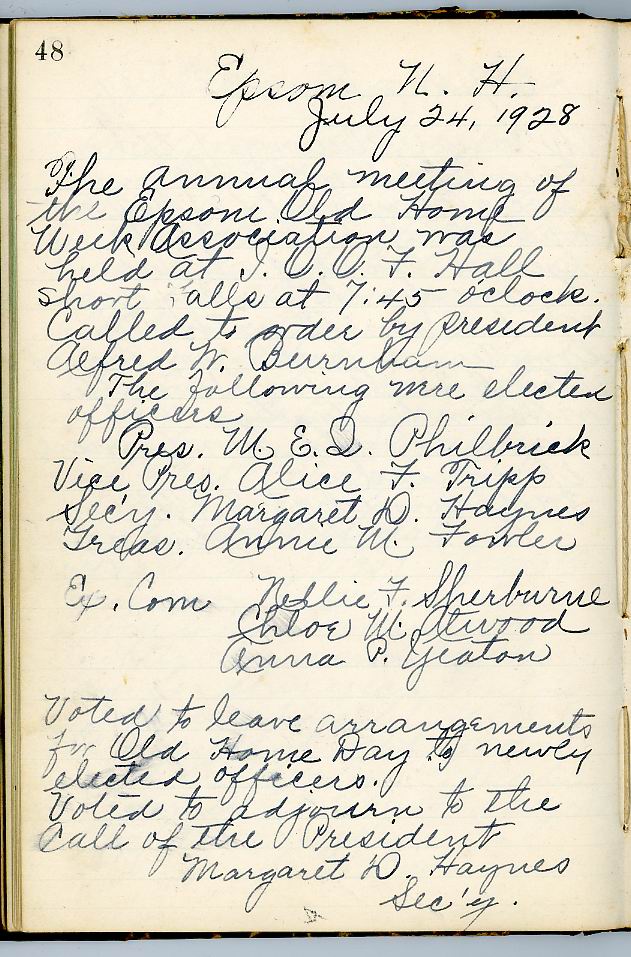 48
Epsom N. H.
July 24, 1928
The annual meeting of
the Epsom Old Home
Week Association was
held at I. O. O. F. Hall
Short Falls at 7:45 o'clock.
Called to order by president
Alfred W. Burnham
The following were elected
officers
Pres. M. E. D. Philbrick
Vice Pres. Alice F. Tripp
Sec'y. Margaret D. Haynes
Treas. Annie M. Fowler
Ex. Com Nellie F. Sherburne
Chloe M. Atwood
Anna P. Yeaton
Voted to leave arrangements
for Old Home Day to newly
elected officers.
Voted to adjourn to the
Call of the President
Margaret D. Haynes
Sec'y.